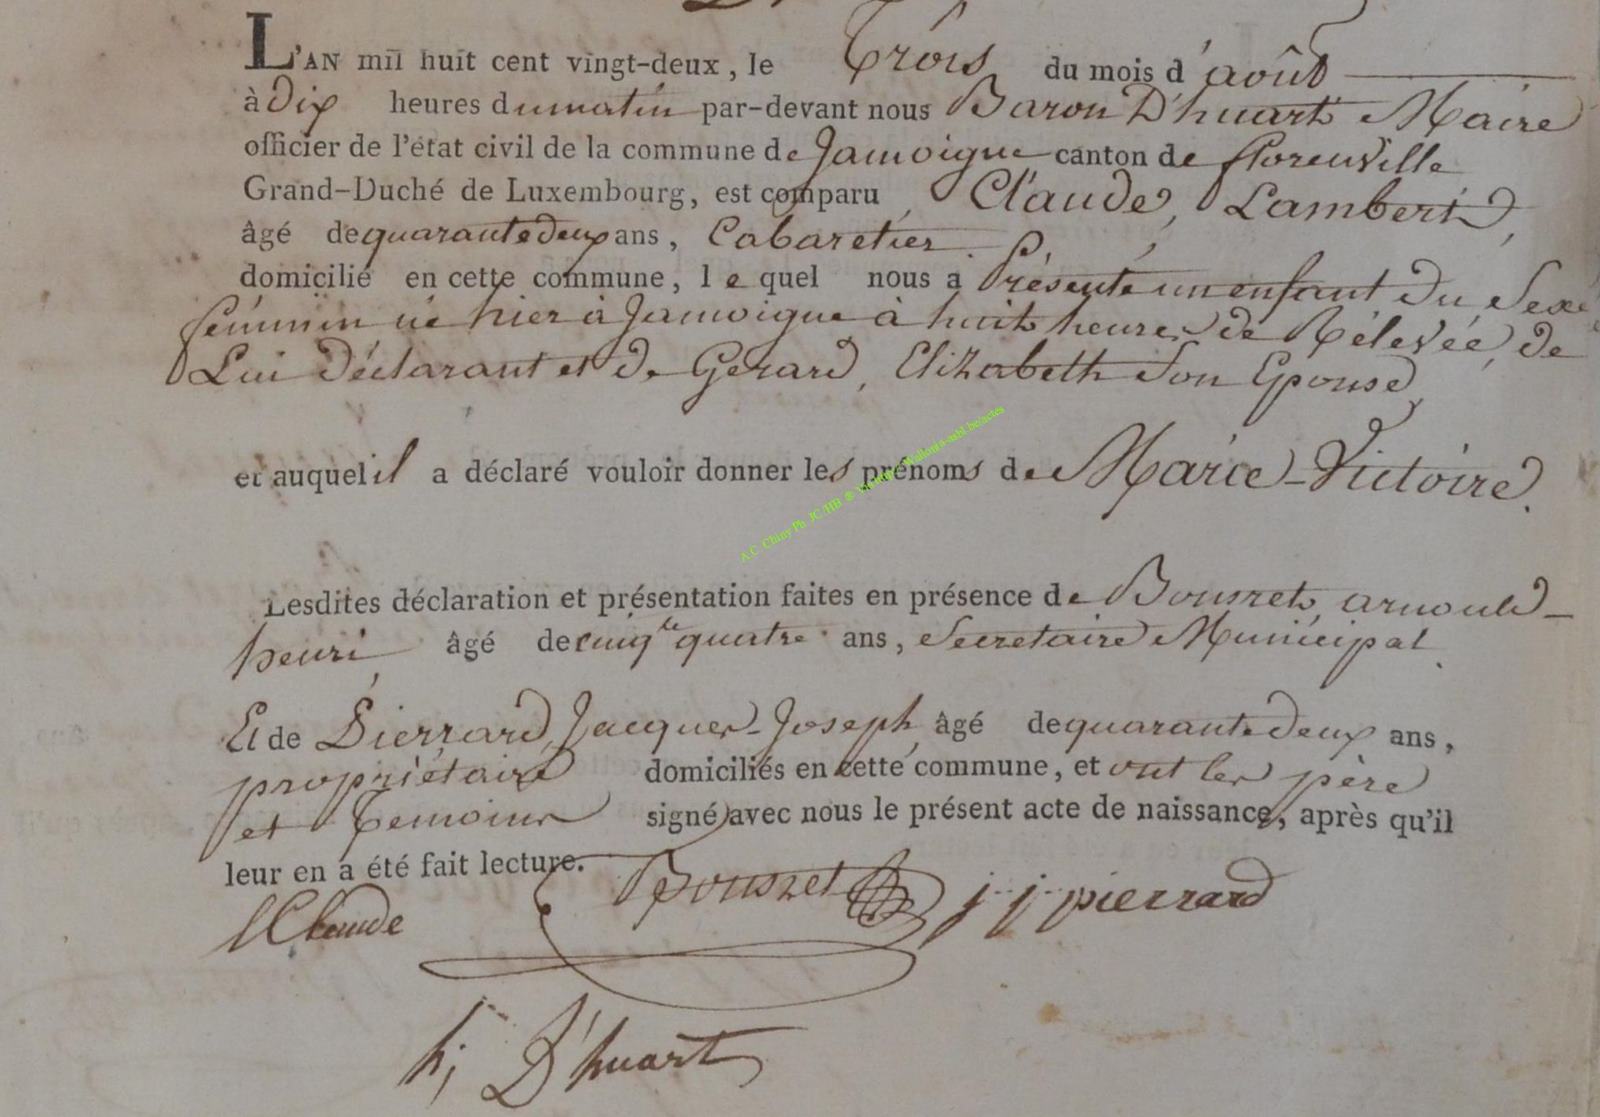 L'AN mil huit cent vingt-deux, le Trois du mois d'août
à Dix heures du matin par-devant nous Baron D'huart Maire
officier de l'état civil de la commune de Jamoigne canton de florenville
Grand-Duché de Luxembourg, est comparu Claude, Lambert,
âgé de quarante deux ans, Cabaretier
domicilié en cette commune, le quel nous a Présenté un enfant du Sexe
féminin né hier à Jamoigne à huit heures de Rélevée, de
Lui déclarant et de Gerard, Elizabeth Son Epouse,
et auquel il a déclaré vouloir donner les prénoms de Marie-Victoire.
A.C. Chiny Ph. JC/HB ©
Lesdites déclaration et présentation faites en présence de arnould-
henri âgé de cinqte quatre ans, Secretaire Municipal.
Et de Pierrard, Jacques-Joseph, âgé de quarante deux ans,
propriétaire domiciliés en cette commune, et ont les père
et Temoins signé avec nous le présent acte de naissance, après qu'il
leur en a été fait lecture.
lClaude j. j. pierrard
h; D'huart